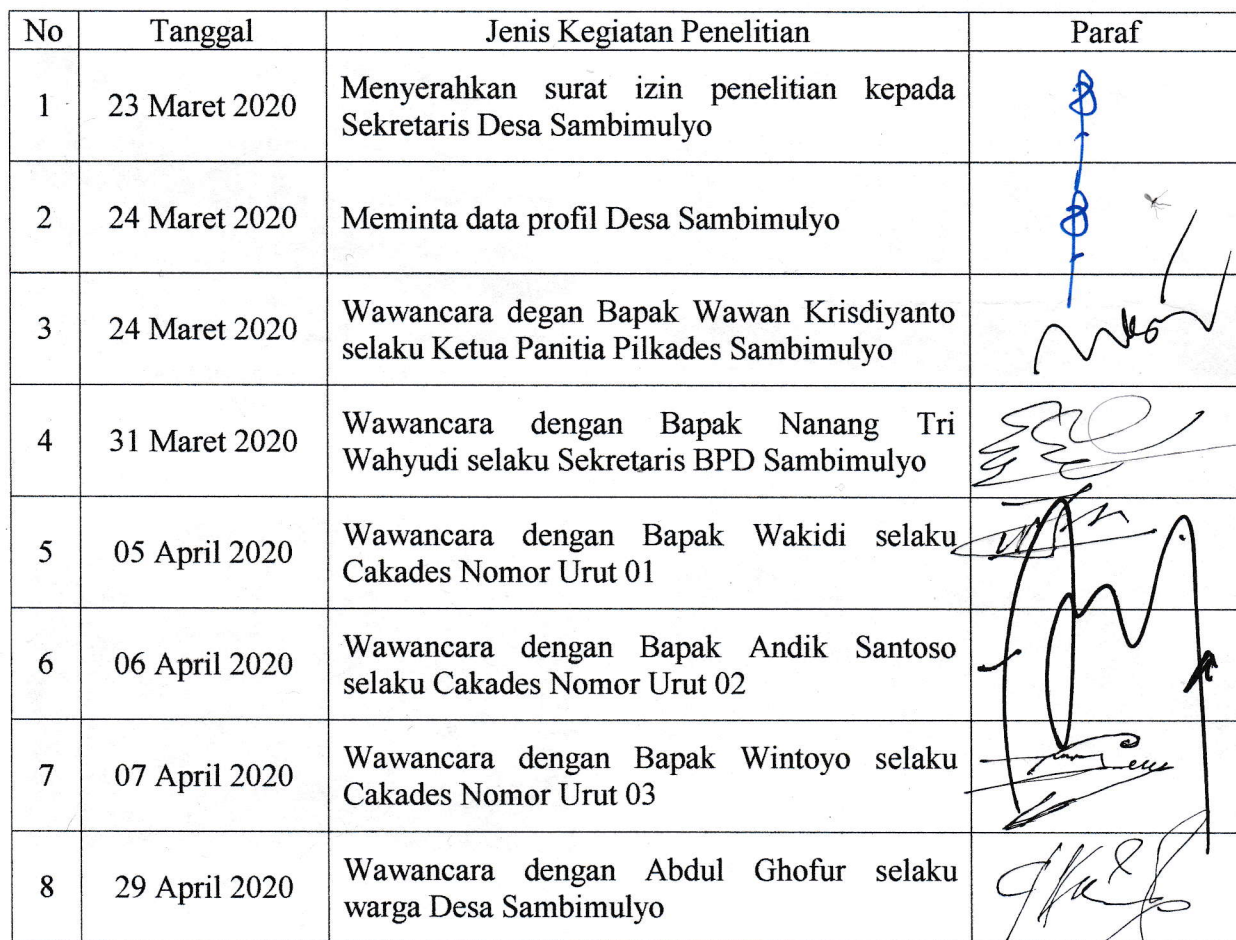 No Tanggal Jenis Kegiatan Penelitian Paraf
1 23 Maret 2020 Menyerahkan surat izin penelitian kepada
Sekretaris Desa Sambimulyo
2 24 Maret 2020 Meminta data profil Desa Sambimulyo
3 24 Maret 2020 Wawancara degan Bapak Wawan Krisdiyanto
selaku Ketua Panitia Pilkades Sambimulyo
4 31 Maret 2020 Wawancara dengan Bapak Nanang Tri
Wahyudi selaku Sekretaris BPD Sambimulyo
5 05 April 2020 Wawancara dengan Bapak Wakidi selaku
Cakades Nomor Urut 01
6 06 April 2020 Wawancara dengan Bapak Andik Santoso
selaku Cakades Nomor Urut 02
7 07 April 2020 Wawancara dengan Bapak Wintoyo selaku
Cakades Nomor Urut 03
8 29 April 2020 Wawancara dengan Abdul Ghofur selaku
warga Desa Sambimulyo